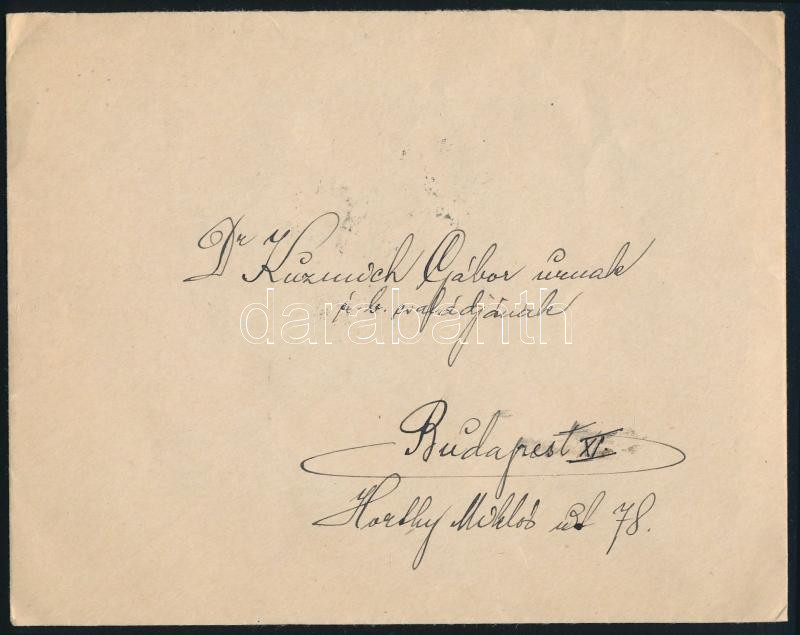 Dr Kuzmich Gábor urnak
és b. családjának
darabanth
Budapest XI.
Horthy Miklós út 78.